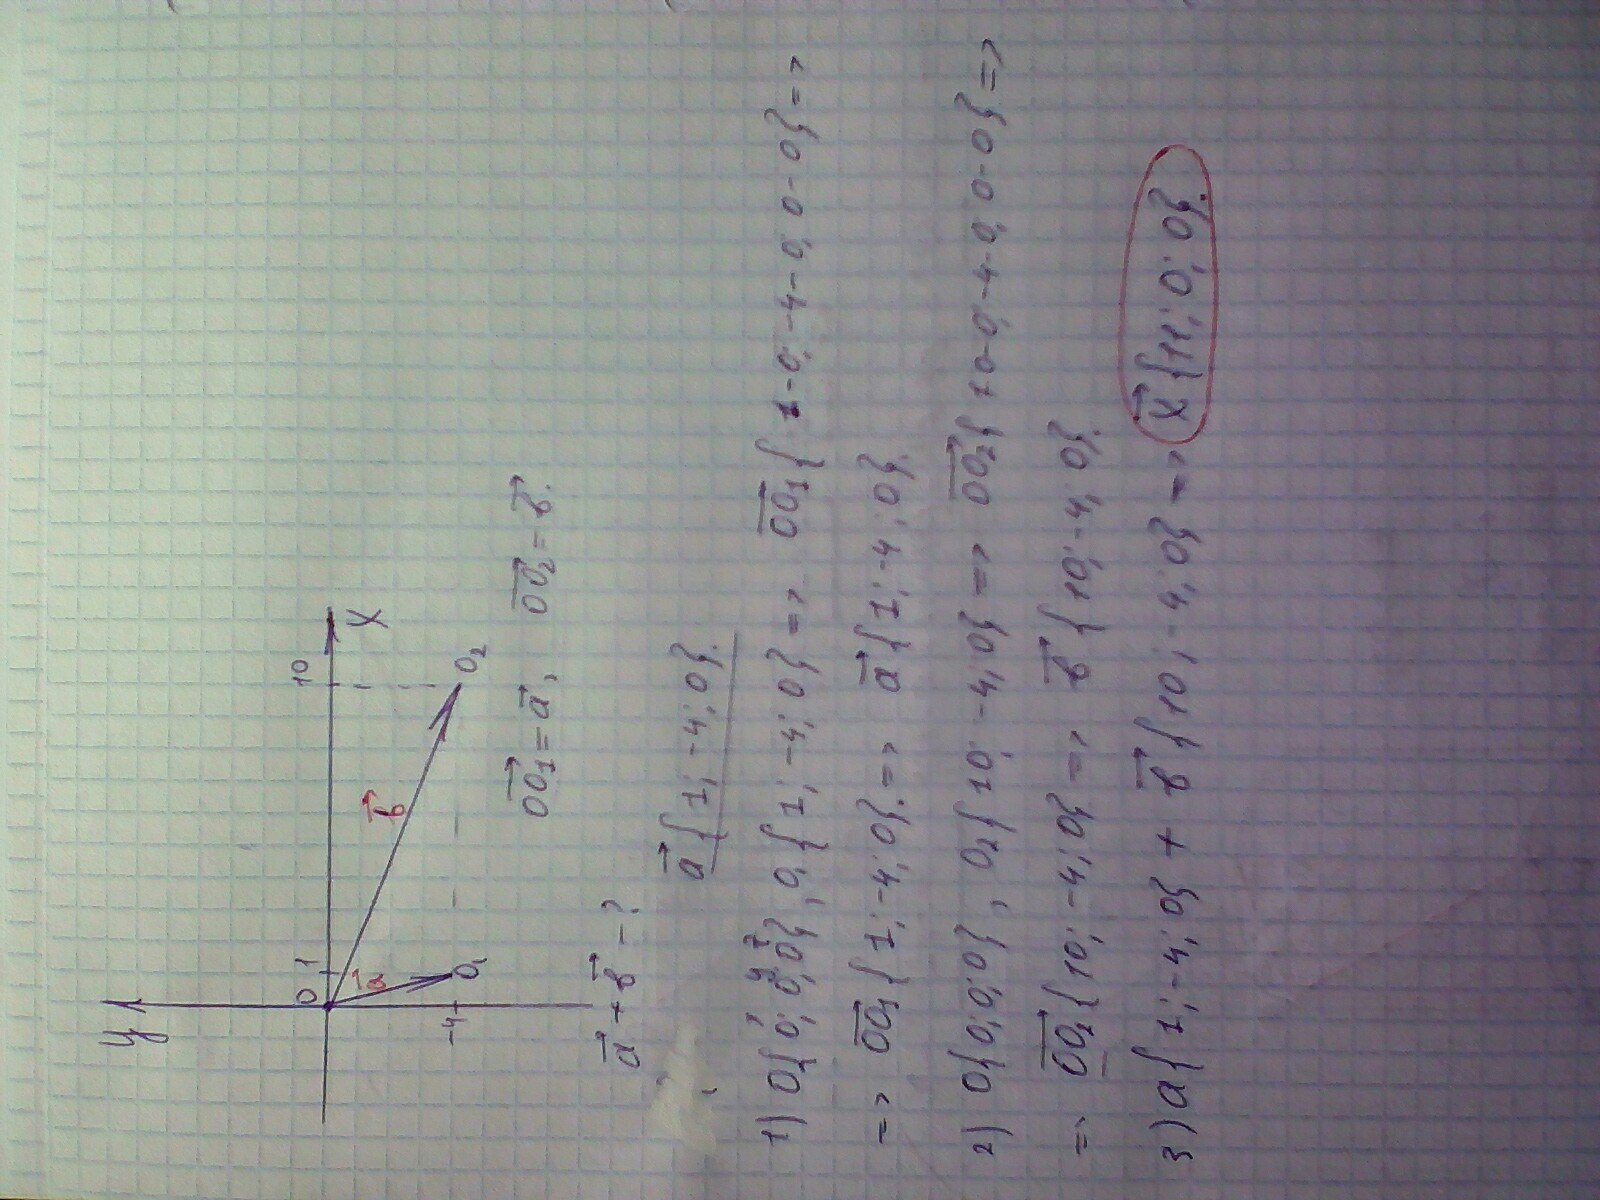 y
0 1 10
a⃗ b⃗ X
-4 O₁ O₂
OO₁⃗ = a⃗, OO₂⃗ = b⃗.
a⃗ + b⃗ - ?
a⃗ {1; -4; 0}.
x y z
1) O{0; 0; 0}, O₁{1; -4; 0} => OO₁⃗ {1-0; -4-0; 0-0} =>
=> OO₁⃗ {1; -4; 0}. => a⃗ {1; -4; 0}.
2) O{0; 0; 0}, O₂{10; -4; 0} => OO₂⃗ {10-0; -4-0; 0-0} =>
=> OO₂⃗ {10; -4; 0} => b⃗ {10; -4; 0}.
3) a{1; -4; 0} + b⃗ {10; -4; 0} => x⃗ {11; 0; 0}.